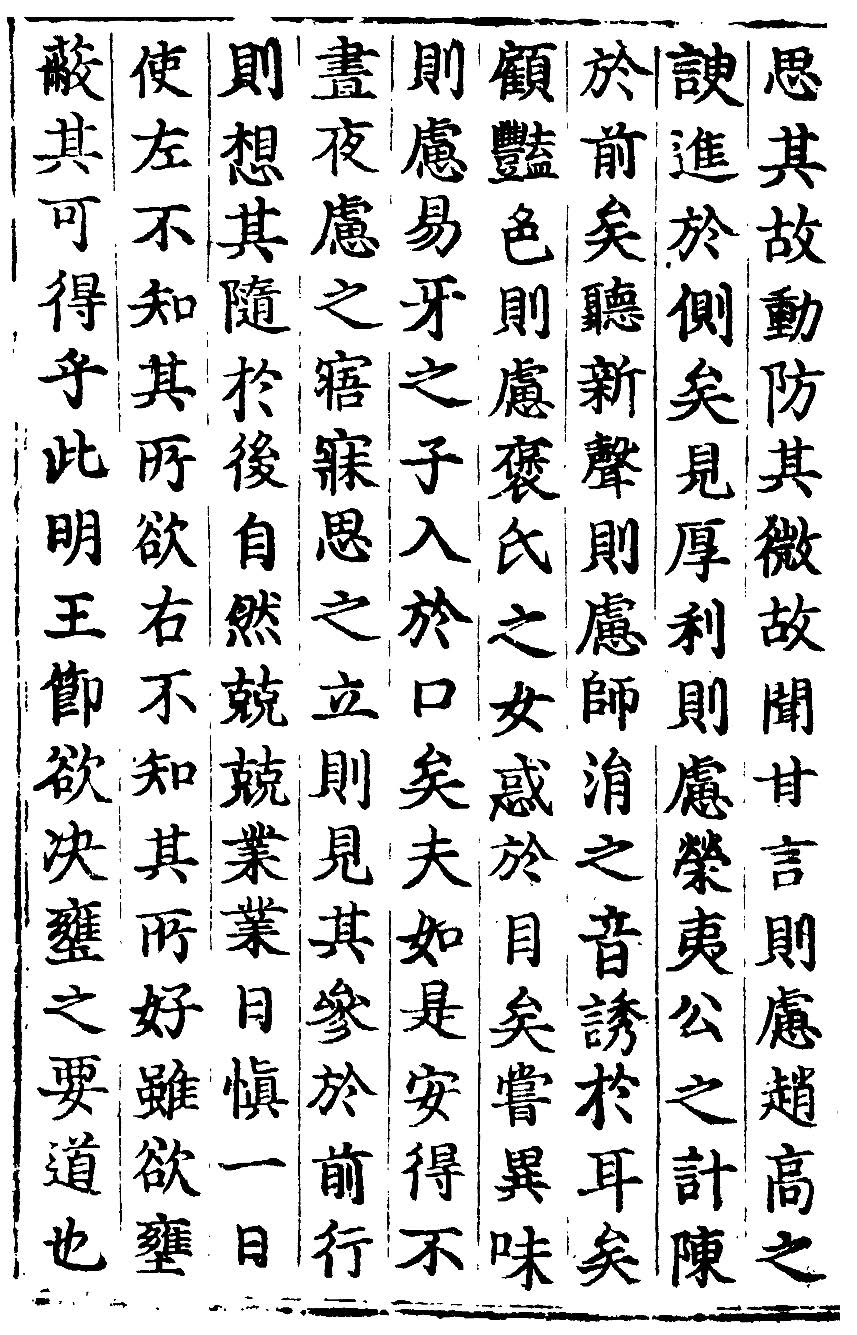 思其故動防其微故聞甘言則慮趙高之
諛進於側矣見厚利則慮榮夷公之計陳
於前矣聽新聲則慮師涓之音誘於耳矣
顧豔色則慮褒氏之女惑於目矣嘗異味
則慮易牙之子入於口矣夫如是安得不
晝夜慮之寤寐思之立則見其參於前行
則想其隨於後自然兢兢業業日慎一日
使左不知其所欲右不知其所好雖欲壅
蔽其可得乎此明王節欲决壅之要道也